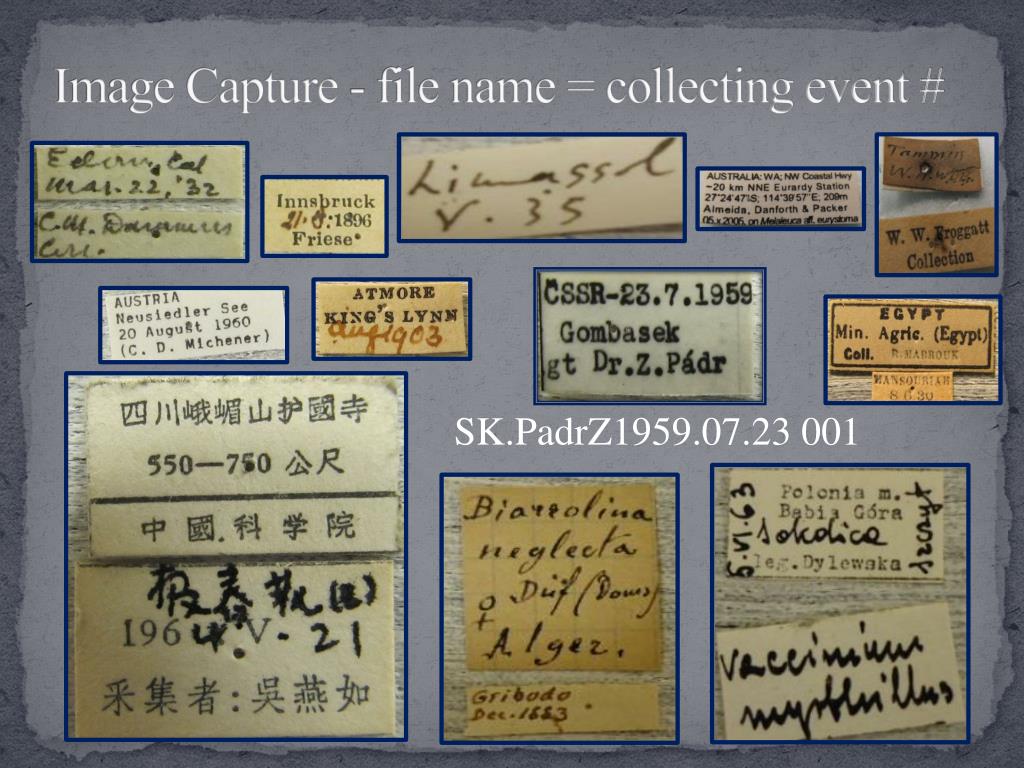 Image Capture - file name = collecting event #
Mar. 22, '32
Coll.
Innsbruck
21.8.1896
Friese
Limassol
V. 35
AUSTRALIA: WA; NW Coastal Hwy
~20 km NNE Eurardy Station
27°24'47"S; 114°39'57"E; 209m
Almeida, Danforth & Packer
05.x.2005, on Melaleuca aff. eurystoma
W. W. Froggatt
Collection
AUSTRIA
Neusiedler See
20 August 1960
(C. D. Michener)
ATMORE
KING'S LYNN
Aug 1903
ČSSR-23.7.1959
Gombasek
lgt Dr.Z.Pádr
EGYPT
Min. Agric. (Egypt)
Coll. R. MABROUK
MANSOURIAH
8.6.30
SK.PadrZ1959.07.23 001
四川峨嵋山护國寺
550—750 公尺
中國.科学院
1964.V.21
采集者:吳燕如
Biareolina
neglecta
♀ Duf (Dours)
Alger.
Gribodo
Dec. 1883
5.VI.63
Polonia m.
Babia Góra
Sokolica
leg. Dylewska
Vaccinium
myrthillus